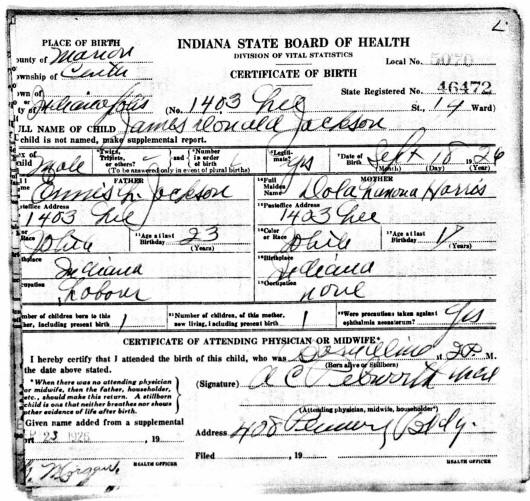 L
PLACE OF BIRTH
INDIANA STATE BOARD OF HEALTH
ounty of Marion
DIVISION OF VITAL STATISTICS
Local No. 5070
ownship of Center
CERTIFICATE OF BIRTH
State Registered No. 46472
own of
or
ty of Indianapolis (No. 1403 Lee St., 14 Ward)
ULL NAME OF CHILD James Donald Jackson
child is not named, make supplemental report.
ex of
hild Male
Twins, Triplets, or others?
and
Number in order of birth
(To be answered only in event of plural births)
Legiti-
mate? Yes
Date of Birth Sept 18 1926
(Month) (Day) (Year)
FATHER
Jackson
MOTHER
Full Maiden Name Harris
ostoffice Address
1403 Lee
Postoffice Address
1403 Lee
or Race White
Age at last Birthday 23
(Years)
Color or Race White
Age at last Birthday 17
(Years)
thplace
Indiana
Birthplace
Indiana
cupation
Labour
Occupation
none
mber of children born to this
her, including present birth 1
Number of children, of this mother,
now living, including present birth 1
Were precautions taken against
ophthalmia neonatorum? Yes
CERTIFICATE OF ATTENDING PHYSICIAN OR MIDWIFE*
I hereby certify that I attended the birth of this child, who was at M.
(Born alive or Stillborn)
the date above stated.
*When there was no attending physician
or midwife, then the father, householder,
etc., should make this return. A stillborn
child is one that neither breathes nor shows
other evidence of life after birth.
(Signature) A C
(Attending physician, midwife, householder*)
Given name added from a supplemental
ort 23 1926, 19
Address 408 Bldg.
Morgan.
HEALTH OFFICER
Filed , 19
HEALTH OFFICER